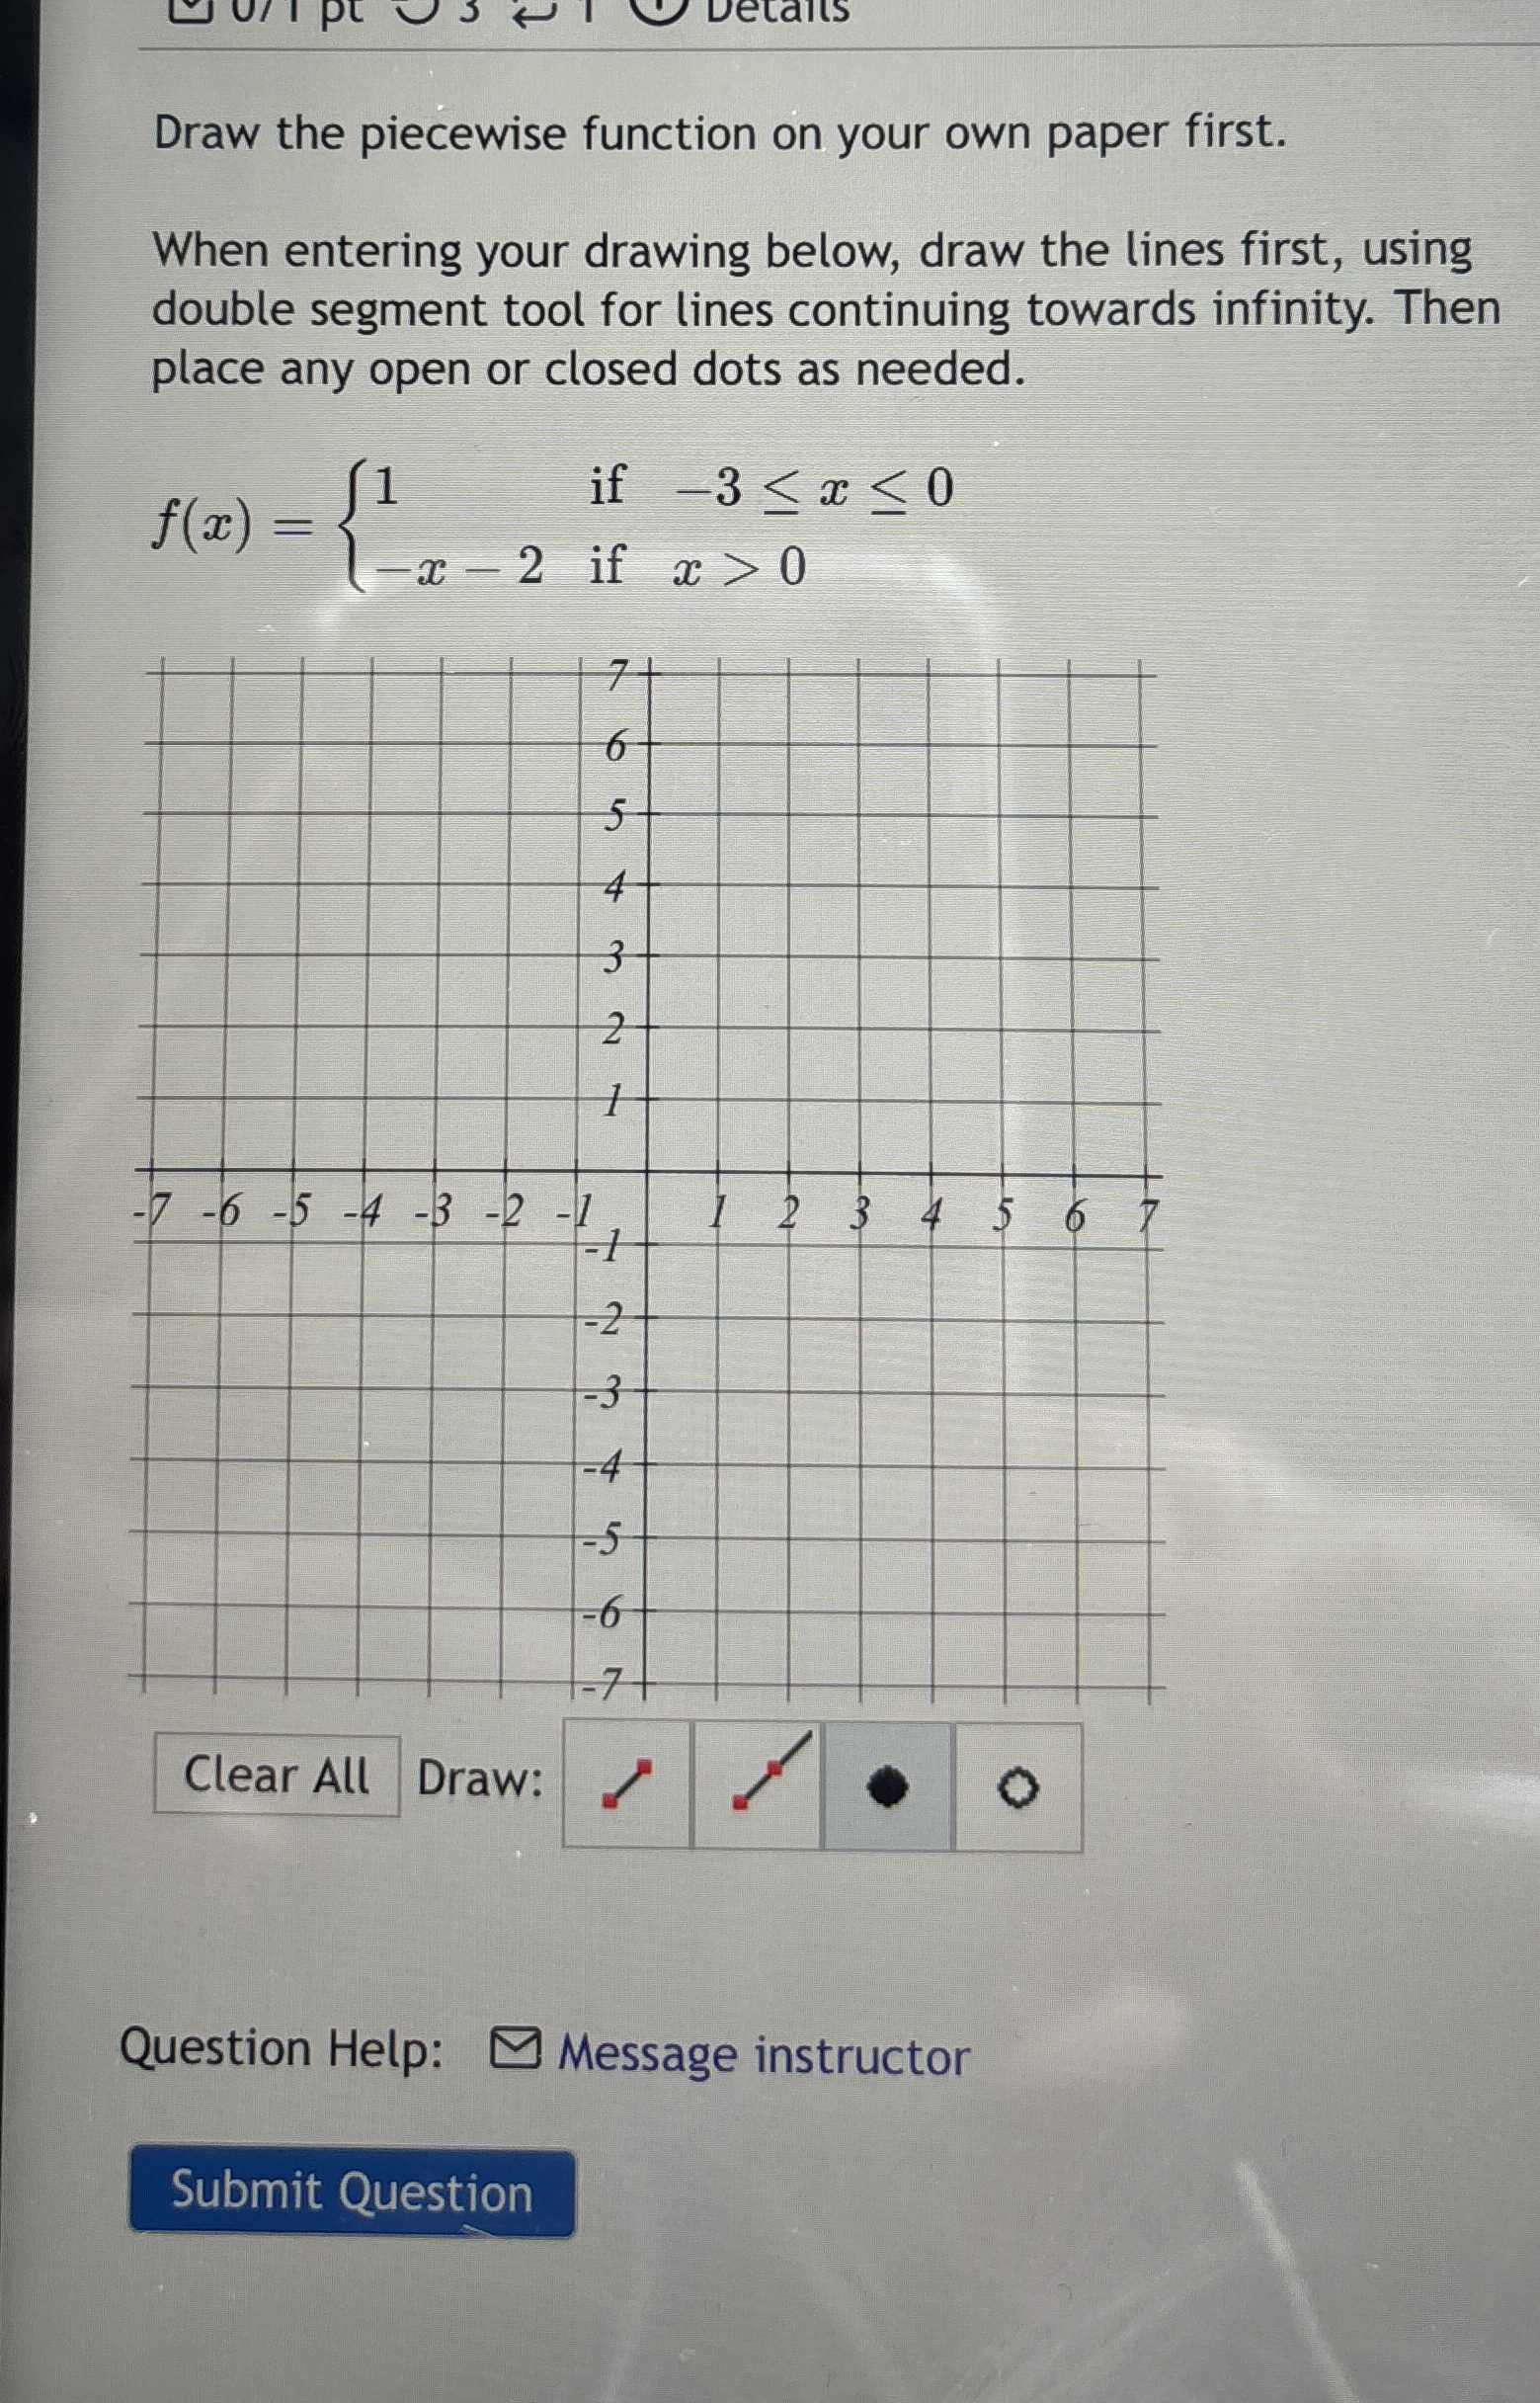 0/1 pt 3 1 Details
Draw the piecewise function on your own paper first.
When entering your drawing below, draw the lines first, using
double segment tool for lines continuing towards infinity. Then
place any open or closed dots as needed.
f(x) = { 1 if −3 ≤ x ≤ 0
−x − 2 if x > 0
7
6
5
4
3
2
1
-7 -6 -5 -4 -3 -2 -1 1 2 3 4 5 6 7
-1
-2
-3
-4
-5
-6
-7
Clear All Draw:
Question Help: Message instructor
Submit Question